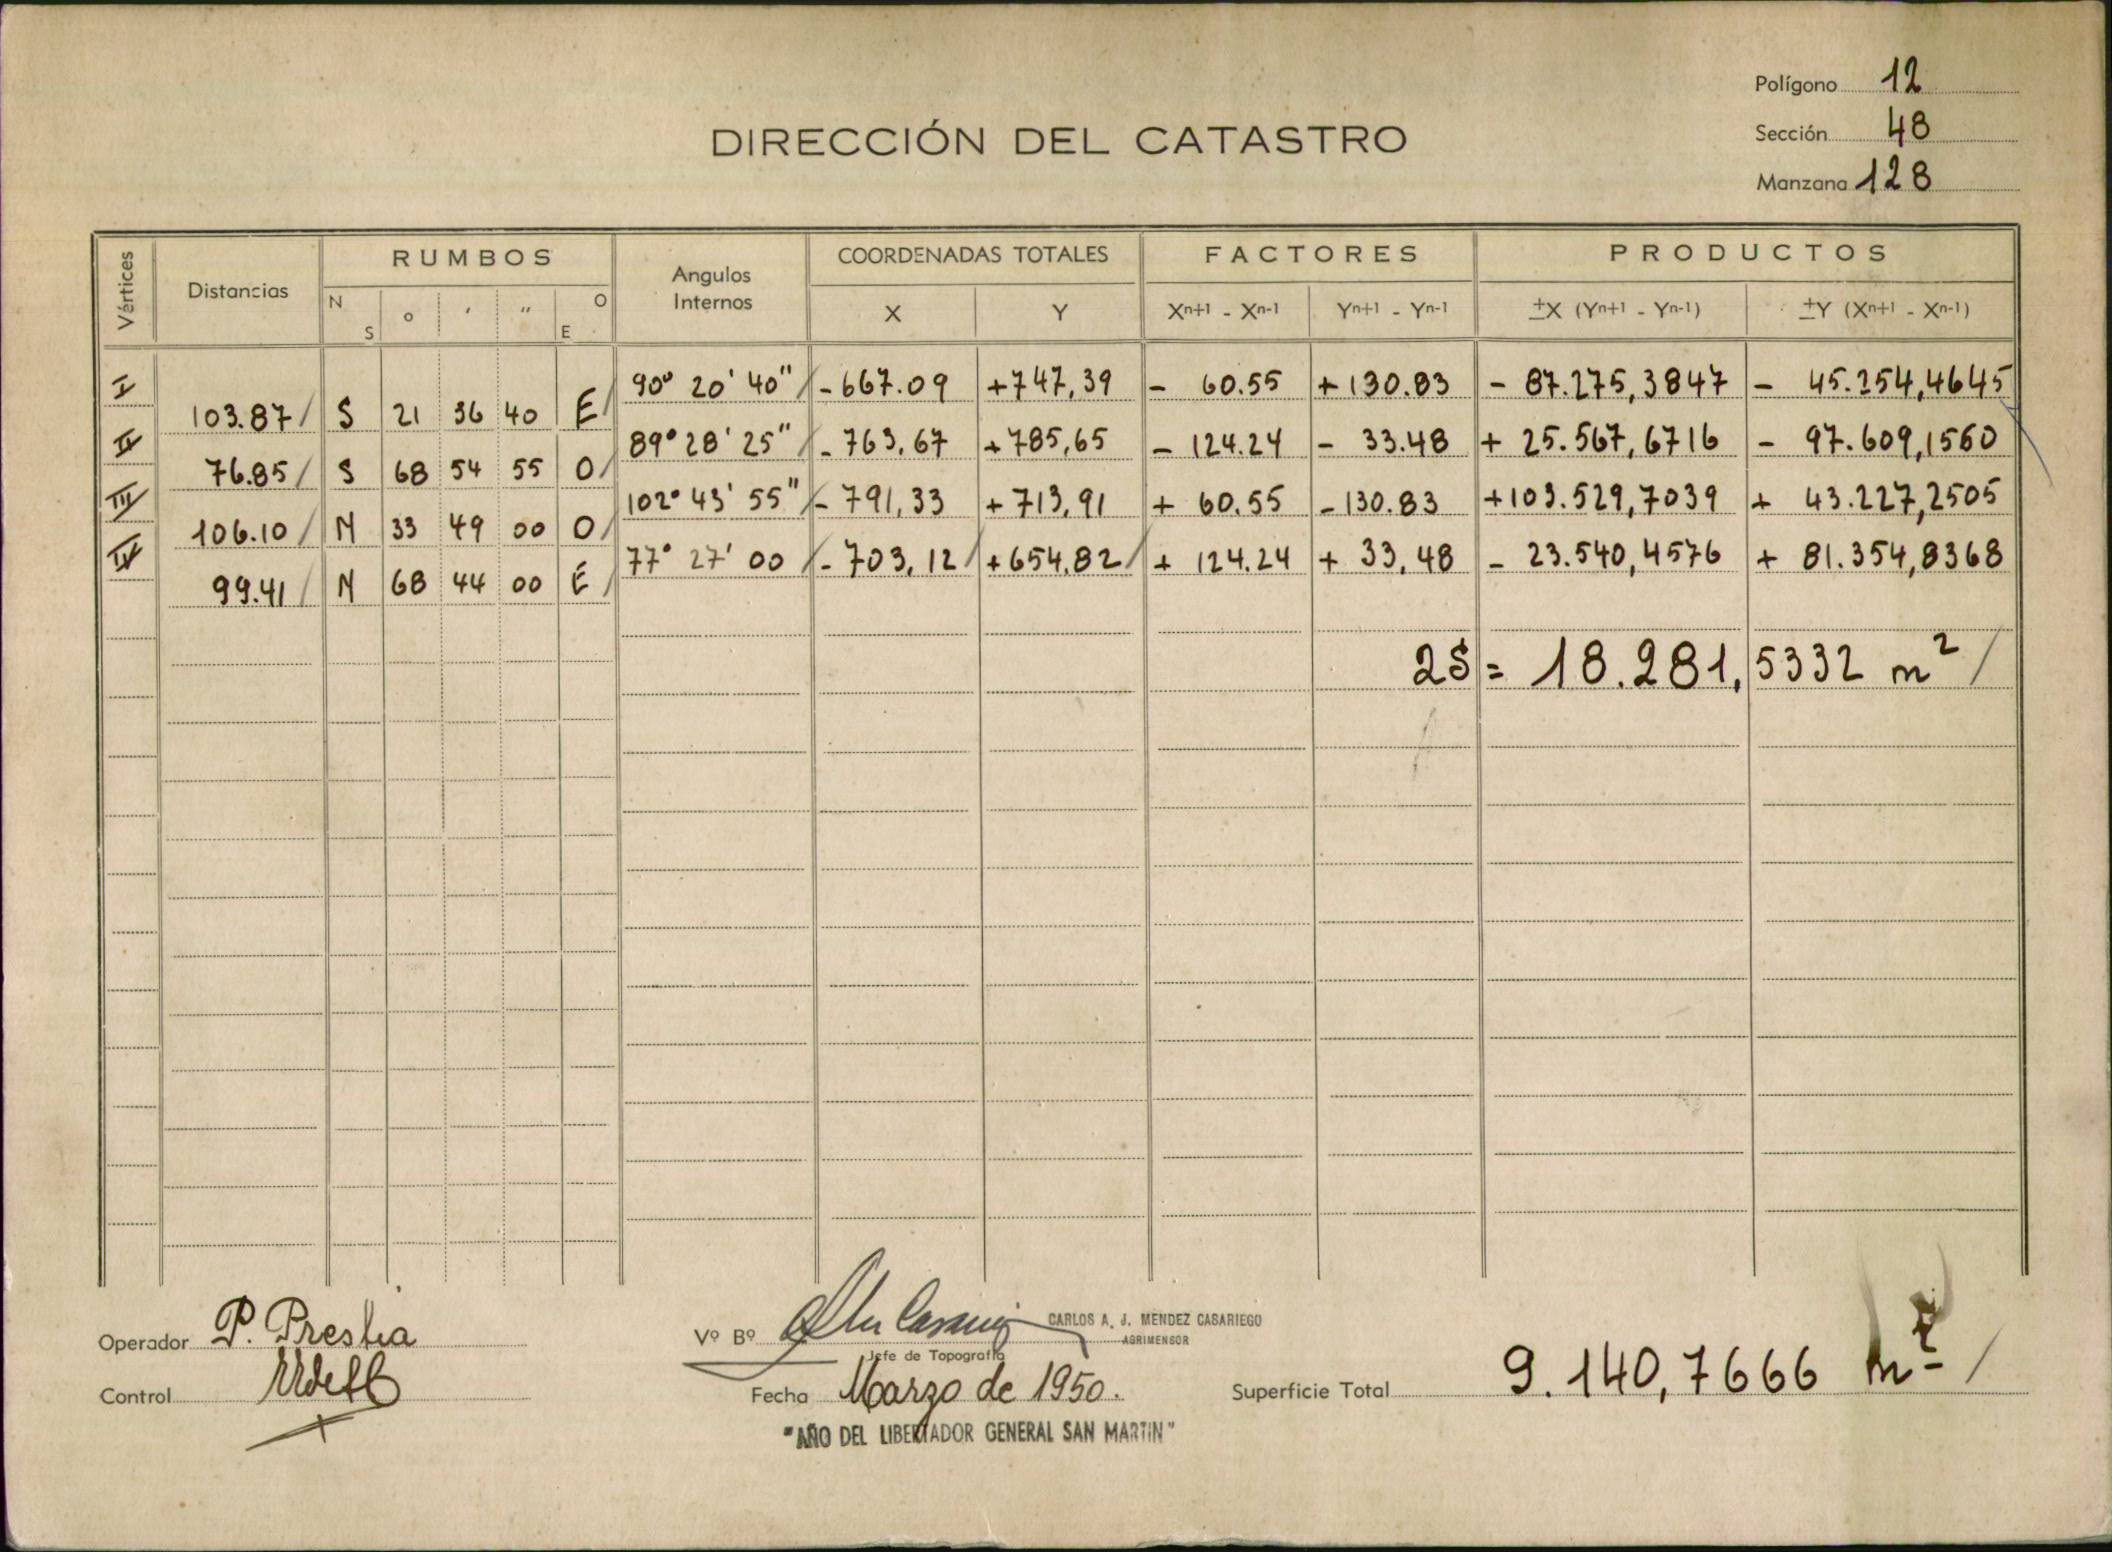 Polígono 12
DIRECCIÓN DEL CATASTRO
Sección 48
Manzana 128
Vértices Distancias RUMBOS Angulos Internos COORDENADAS TOTALES FACTORES PRODUCTOS
N S o ' " O E X Y Xn+1 - Xn-1 Yn+1 - Yn-1 ±X (Yn+1 - Yn-1) ±Y (Xn+1 - Xn-1)
I 90º 20' 40" / - 667.09 +747,39 - 60.55 +130.83 - 87.275,3847 - 45.254,4645
103.87/ S 21 36 40 E/
II 89º 28' 25" / - 763,67 +785,65 - 124.24 - 33.48 + 25.567,6716 - 97.609,1560
76.85/ S 68 54 55 O/
III 102º 43' 55" / - 791,33 +713,91 + 60.55 -130.83 +103.529,7039 + 43.227,2505
106.10/ N 33 49 00 O/
IV 77º 27' 00 / - 703,12/ +654.82/ + 124.24 + 33,48 - 23.540,4576 + 81.354,8368
99.41/ N 68 44 00 E/
2S = 18.281,5332 m² /
Operador P. Prestia
Vº Bº CARLOS A. J. MENDEZ CASARIEGO
AGRIMENSOR
Jefe de Topografía
Control
Fecha Marzo de 1950.
Superficie Total 9.140,7666 m² /
"AÑO DEL LIBERTADOR GENERAL SAN MARTIN"